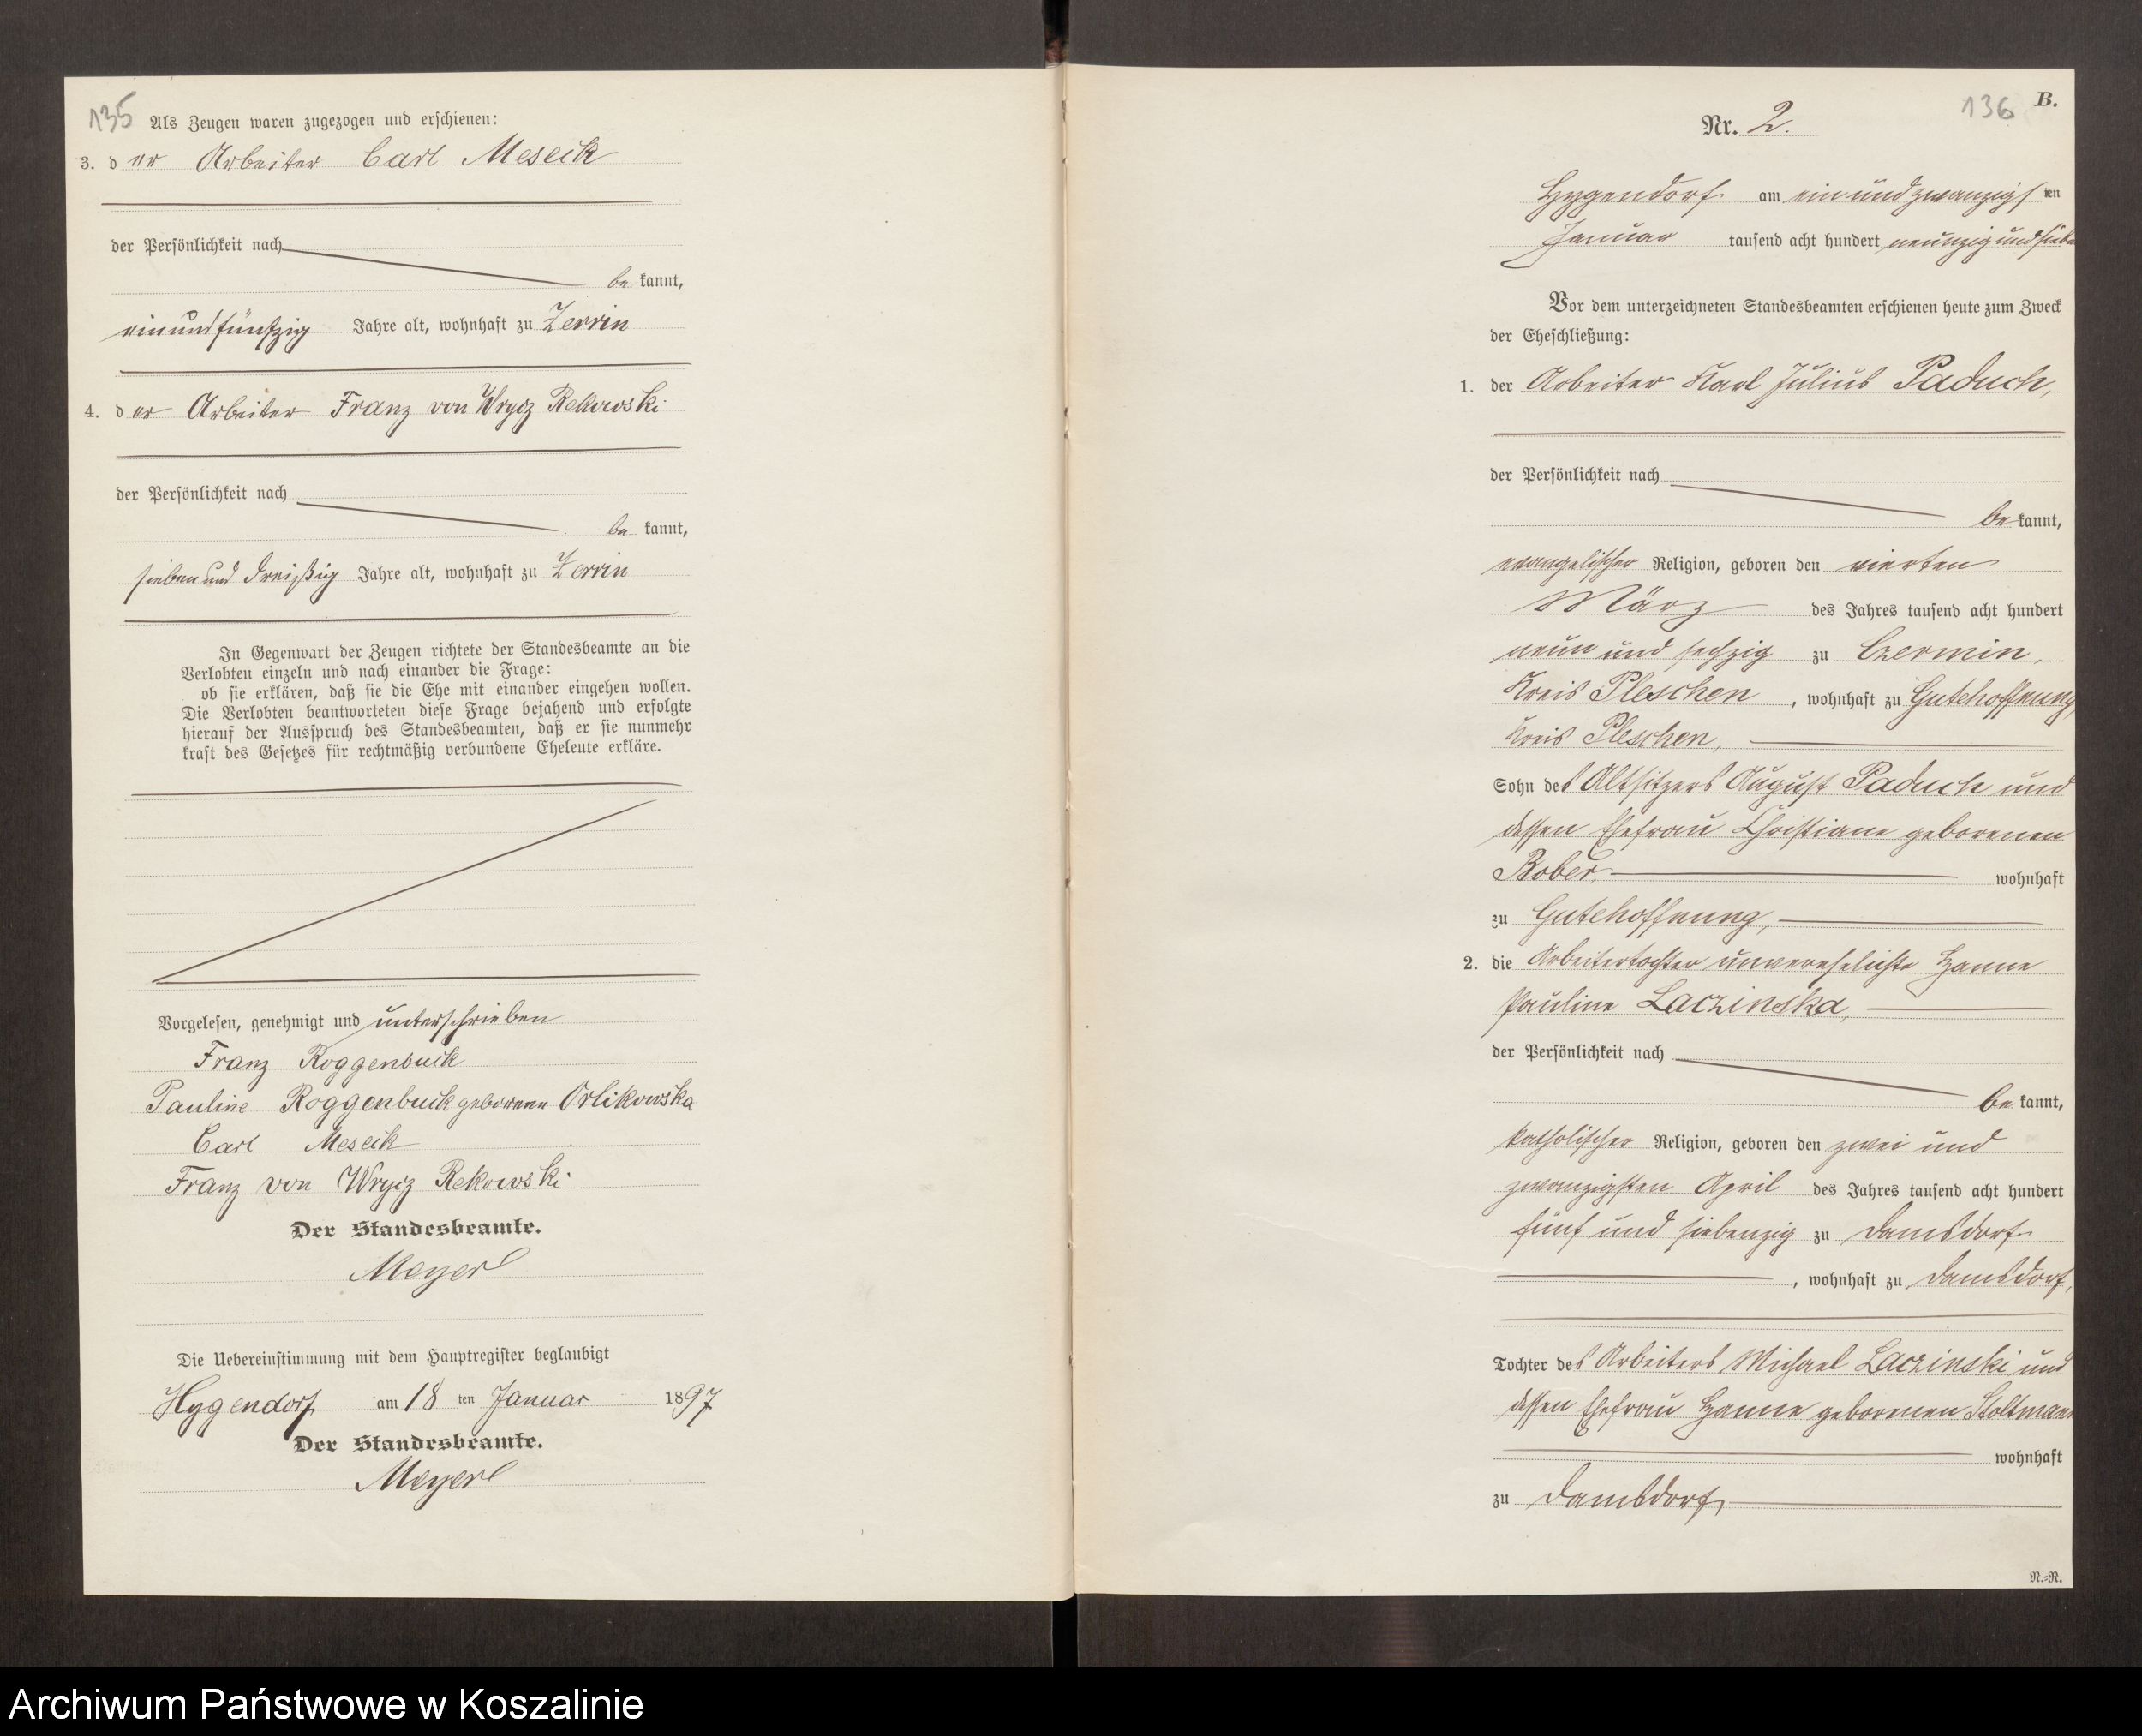 135
Als Zeugen waren zugezogen und erschienen:
3. der Arbeiter Carl Meseik
der Persönlichkeit nach
be kannt,
einundfünfzig Jahre alt, wohnhaft zu Zerrin
4. der Arbeiter Franz von Wrycz Rekowski
der Persönlichkeit nach
be kannt,
sieben und dreißig Jahre alt, wohnhaft zu Zerrin
In Gegenwart der Zeugen richtete der Standesbeamte an die
Verlobten einzeln und nach einander die Frage:
ob sie erklären, daß sie die Ehe mit einander eingehen wollen.
Die Verlobten beantworteten diese Frage bejahend und erfolgte
hierauf der Ausspruch des Standesbeamten, daß er sie nunmehr
kraft des Gesetzes für rechtmäßig verbundene Eheleute erkläre.
Vorgelesen, genehmigt und unterschrieben
Franz Roggenbuck
Pauline Roggenbuck geborene Orlikowska
Carl Meseik
Franz von Wrycz Rekowski
Der Standesbeamte.
Meyerl
Die Uebereinstimmung mit dem Hauptregister beglaubigt
Hygendorf am 18 ten Januar 1897
Der Standesbeamte.
Meyerl
136
B.
Nr. 2.
Hygendorf am einundzwanzigsten
Januar tausend acht hundert neunzig und sieben
Vor dem unterzeichneten Standesbeamten erschienen heute zum Zweck
der Eheschließung:
1. der Arbeiter Karl Julius Paduch,
der Persönlichkeit nach
be kannt,
evangelischer Religion, geboren den vierten
März des Jahres tausend acht hundert
neun und sechzig zu Czermin,
Kreis Pleschen, wohnhaft zu Gutehoffnung,
Kreis Pleschen,
Sohn des Altsitzers August Paduch und
dessen Ehefrau Christiane geborenen
Bober, wohnhaft
zu Gutehoffnung,
2. die Arbeitertochter unverehelichte Hanne
Pauline Laczinska,
der Persönlichkeit nach
be kannt,
katholischer Religion, geboren den zwei und
zwanzigsten April des Jahres tausend acht hundert
fünf und siebenzig zu Damsdorf
, wohnhaft zu Damsdorf,
Tochter des Arbeiters Michael Laczinski und
dessen Ehefrau Hanne geborenen Stoltmann
wohnhaft
zu Damsdorf,
N.=R.
Archiwum Państwowe w Koszalinie